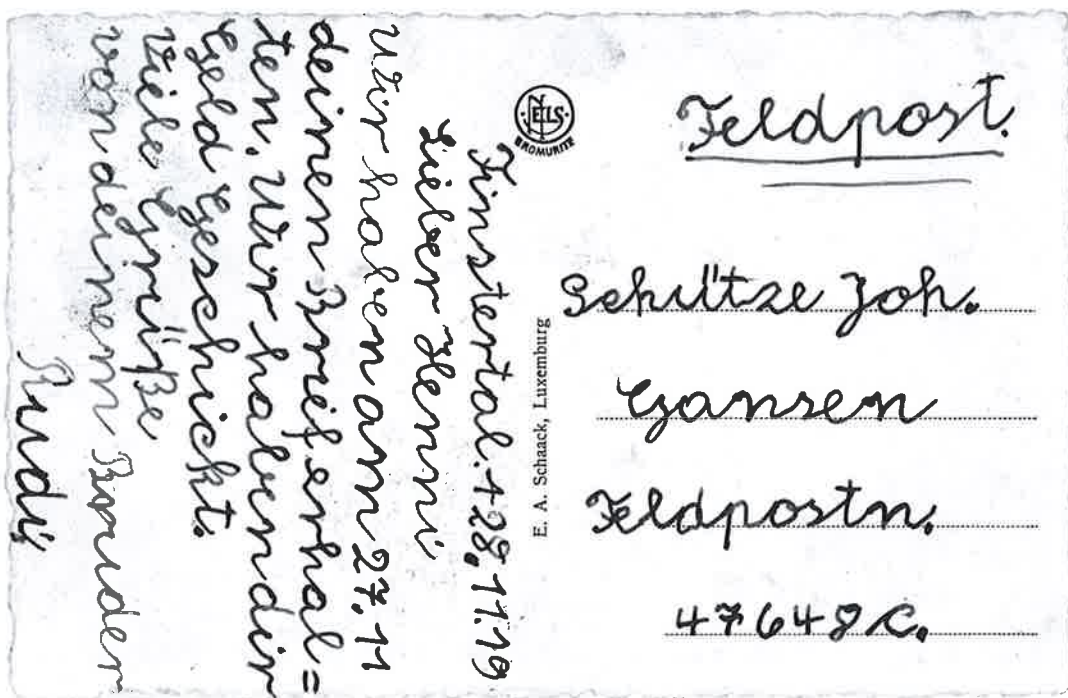 Feldpost.
Schütze Joh.
Gansen
Feldpostn.
47648 C.
E. A. Schaack, Luxemburg
NELS
BROMURITE
Finstertal. + 28. 11. 19
Lieber Henni
Wir haben am 27. 11
deinen Brief erhal=
ten. Wir haben dir
Geld Geschickt.
Viele Grüße
von deinem Bruder
Rudi,